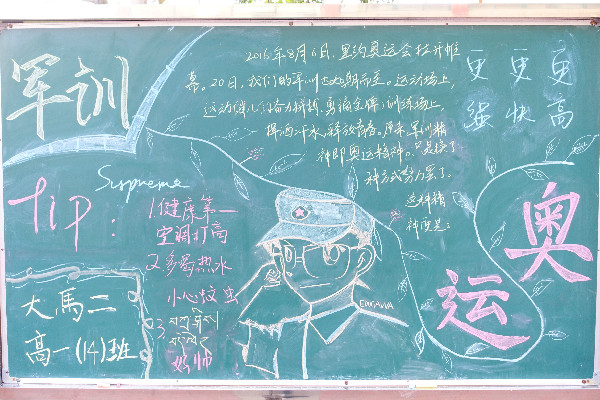 军训
2016年8月6日,里约奥运会拉开帷
幕。20日,我们的军训如期而至。运动场上,
运动健儿们奋力拼搏,勇摘金牌;训练场上
挥洒汗水,释放青春。原来,军训精
神即奥运精神。只是换了
种方式努力罢了。
这种精
神便是:
更 更 更
强 快 高
奥
运
Tip:
Supreme
1.健康第一
空调打高
2.多喝热水
小心蚊虫
3.
好帅
EDGAWA
大馬二
高一(14)班